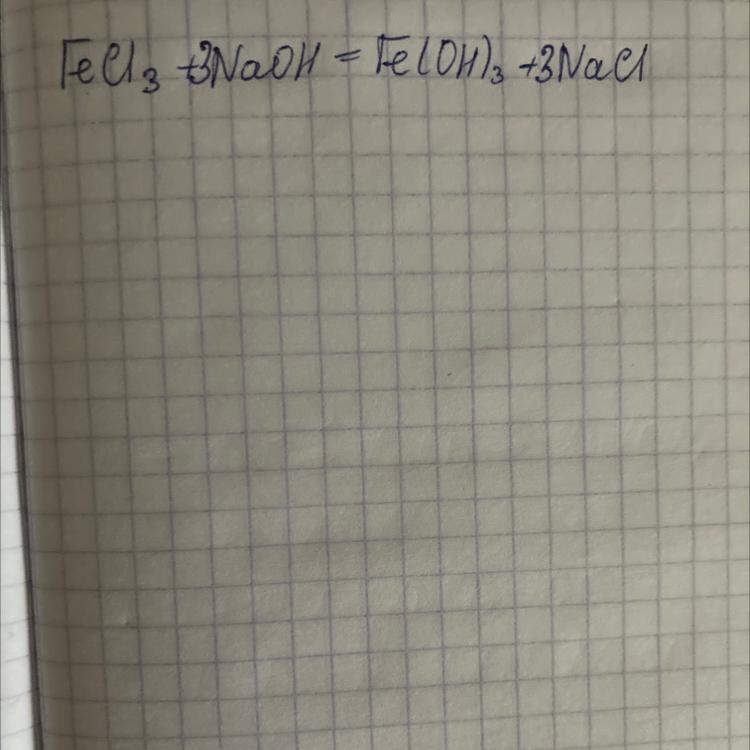 FeCl₃ +3NaOH = Fe(OH)₃ +3NaCl